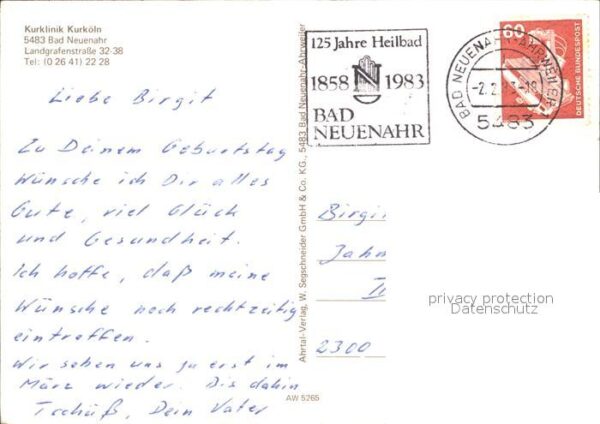 Kurklinik Kurköln
5483 Bad Neuenahr
Landgrafenstraße 32-38
Tel: (0 26 41) 22 28
Liebe Birgit
Zu Deinem Geburtstag
wünsche ich Dir alles
Gute, viel Glück
und Gesundheit.
Ich hoffe, daß meine
Wünsche noch rechtzeitig
eintreffen.
Wir sehen uns zu erst im
März wieder. Bis dahin
Tschüß, Dein Vater
Ahrtal-Verlag, W. Segschneider GmbH & Co. KG., 5483 Bad Neuenahr-Ahrweiler
AW 5265
125 Jahre Heilbad
1858 1983
BAD
NEUENAHR
BAD NEUENAHR-AHRWEILER
5483
60
DEUTSCHE BUNDESPOST
Birgi
Jahn
2300
privacy protection
Datenschutz